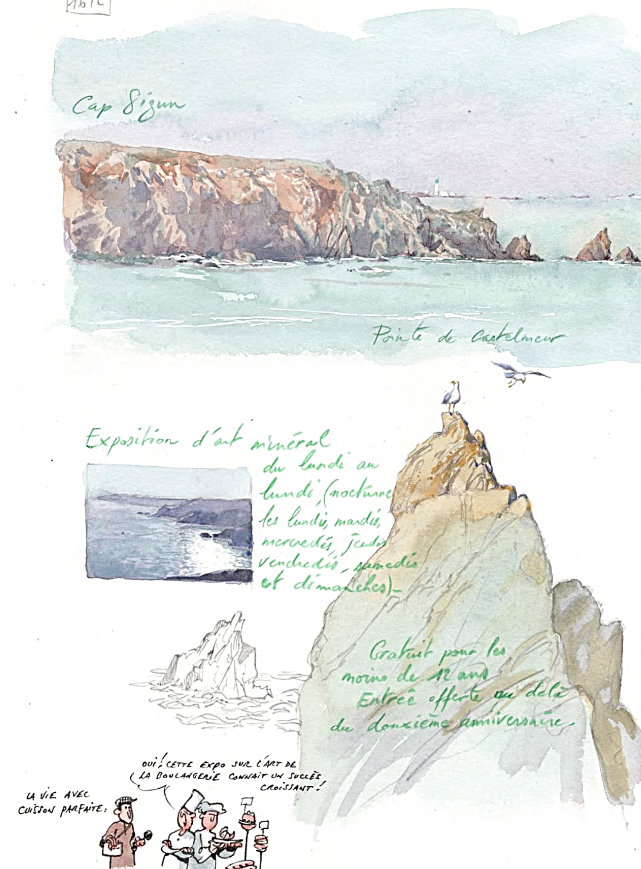 Cap Sizun
Pointe de Castelmeur
Exposition d'art minéral
du lundi au
lundi, (nocturne
les lundis, mardis,
mercredis, jeudis
vendredis, samedis
et dimanches)_
Gratuit pour les
moins de 12 ans
Entrée offerte au delà
du douxième anniversaire.
OUI! CETTE EXPO SUR L'ART DE
LA BOULANGERIE CONNAIT UN SUCCÈS
CROISSANT!
LA VIE AVEC
CUISSON PARFAITE: